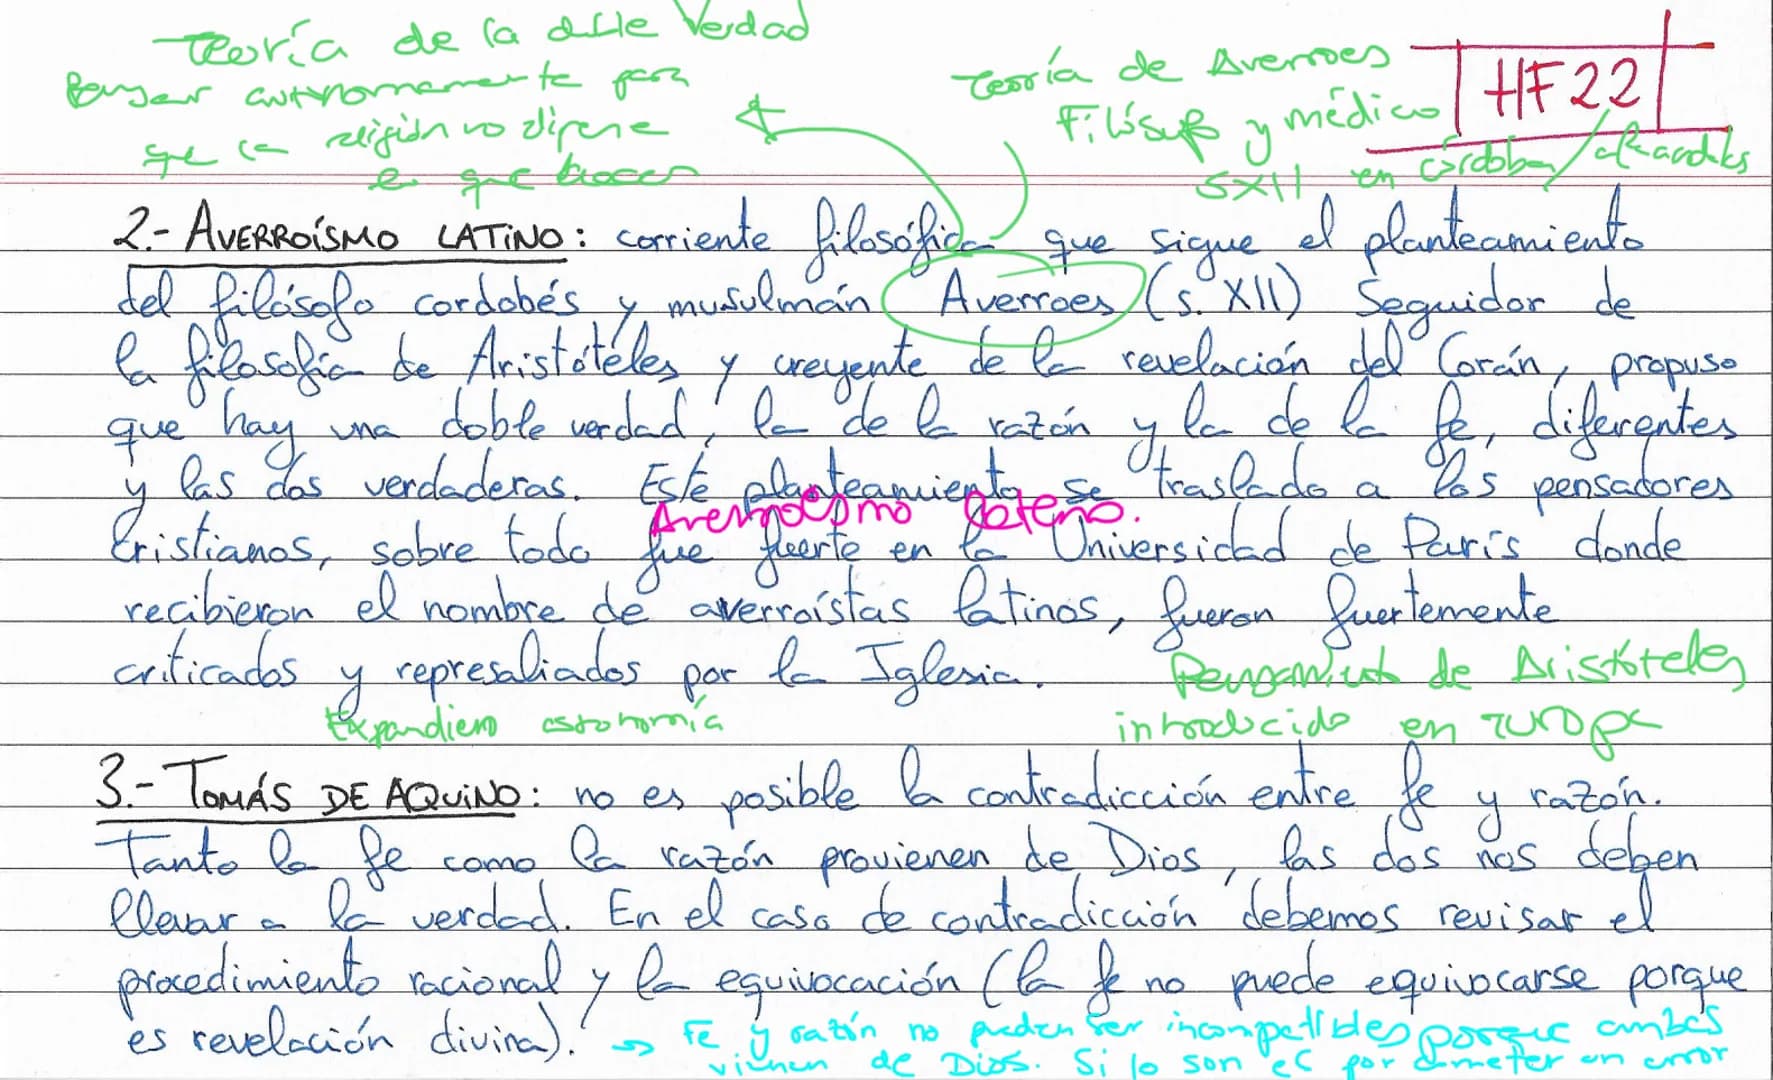 Teoría de la doble Verdad
Pensar autonomamente para
que la religión no dipene
lo que haces
Teoría de Averroes
Filósofo y médico
SXII en córdoba
HF22
2.- AVERROÍSMO LATINO: corriente filosófica que sigue el planteamiento
del filósofo cordobés y musulmán Averroes (s. XII) Seguidor de
la filosofía de Aristóteles y creyente de la revelación del Corán, propuso
que hay una doble verdad, la de la razón y la de la fe, diferentes
y las dos verdaderas. Este planteamiento se traslado a los pensadores
Averroismo lateno.
Cristianos, sobre todo fue fuerte en la Universidad de París donde
recibieron el nombre de averroístas latinos, fueron fuertemente
criticados y represaliados por la Iglesia.
Pensamiento de Aristóteles
introducido en Europa
Expandiero astonomía
3.- TOMÁS DE AQUINO: no es posible la contradicción entre fe y razón.
Tanto la fe como la razón provienen de Dios, las dos nos deben
llevar a la verdad. En el caso de contradicción debemos revisar el
procedimiento racional y la equivocación (la fe no puede equivocarse porque
es revelación divina).
→ Fe y razón no pueden ser incompatibles porque ambas
vienen de Dios. Si lo son es por cometer un error